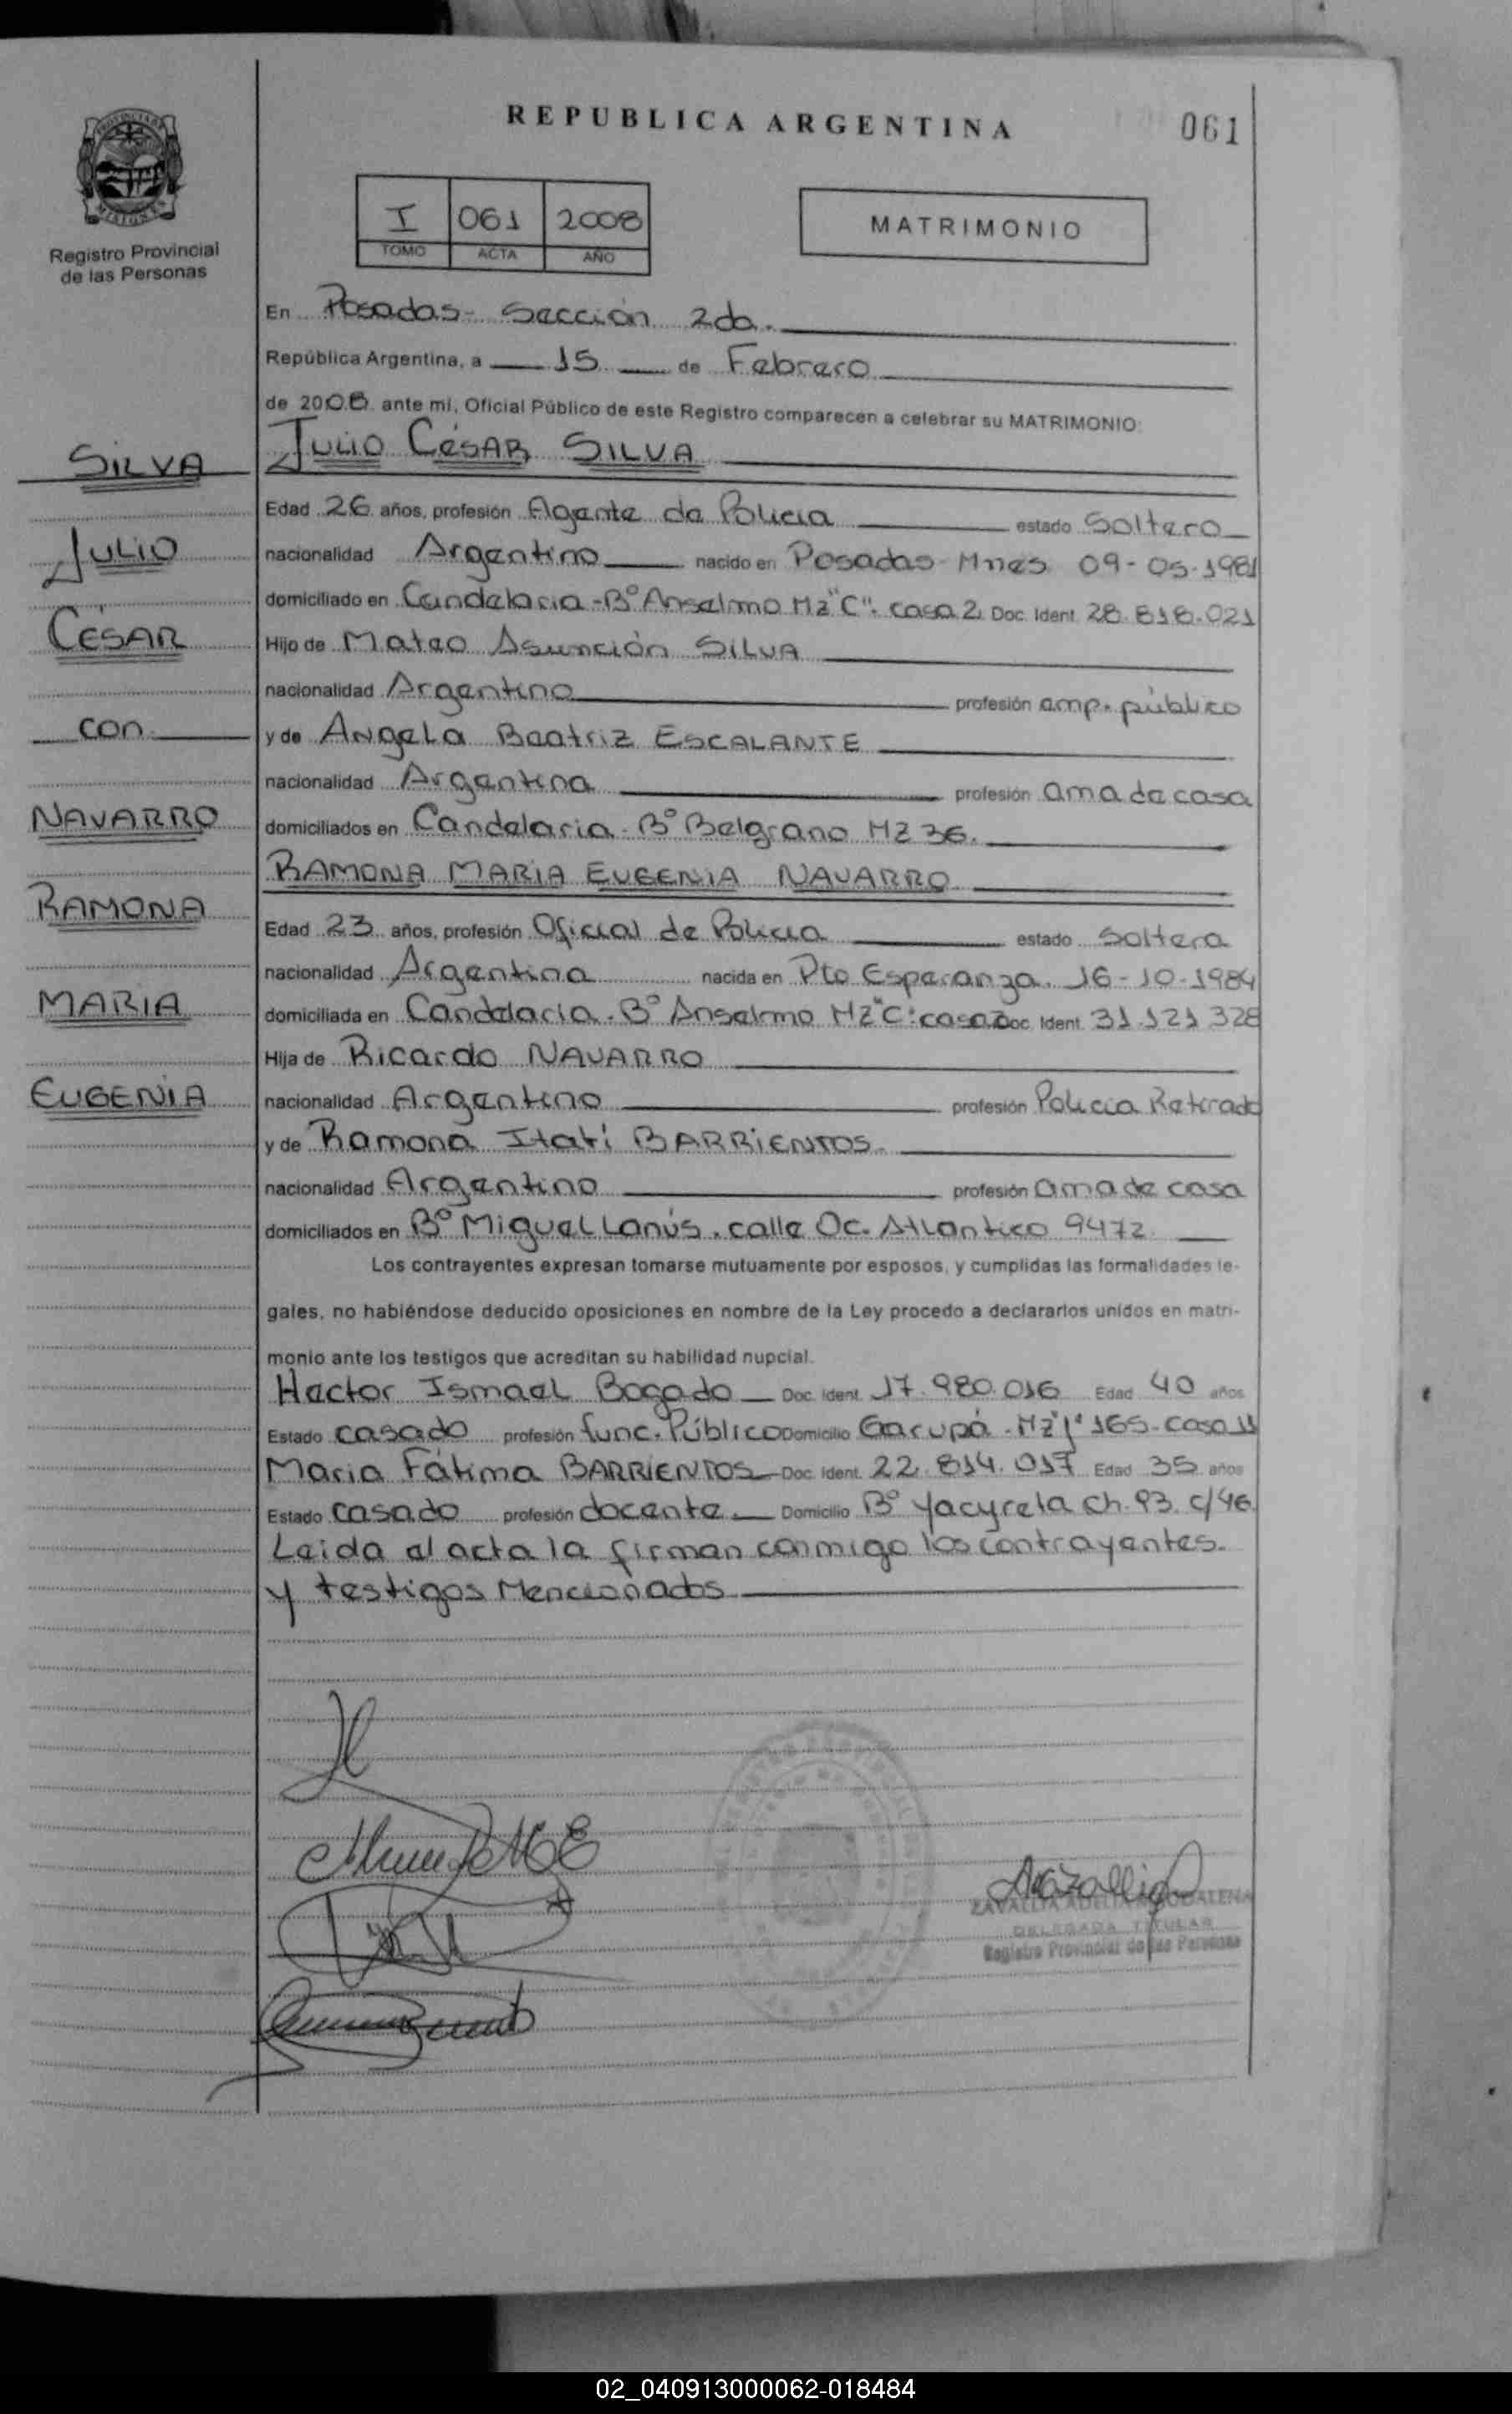 REPUBLICA ARGENTINA
061
PROVINCIA DE
MISIONES
Registro Provincial
de las Personas
I 061 2008
TOMO ACTA AÑO
MATRIMONIO
En Posadas- Sección 2da.
República Argentina, a 15 de Febrero
de 2008 ante mi, Oficial Público de este Registro comparecen a celebrar su MATRIMONIO:
SILVA
JULIO CÉSAR SILVA
Edad 26 años, profesión Agente de Policia estado Soltero
JULIO
nacionalidad Argentino nacido en Posadas-Mnes 09-05-1981
domiciliado en Candelaria-B° Anselmo Mz"C". casa 2. Doc. Ident. 28.818.021
CÉSAR
Hijo de Mateo Asunción SILVA
nacionalidad Argentino profesión emp. público
con
y de Angela Beatriz ESCALANTE
nacionalidad Argentina profesión ama de casa
NAVARRO
domiciliados en Candelaria- B° Belgrano MZ 36.
RAMONA MARIA EUGENIA NAVARRO
RAMONA
Edad 23 años, profesión Oficial de Policia estado Soltera
nacionalidad Argentina nacida en Pto Esperanza. 16-10-1984
MARIA
domiciliada en Candelaria-B° Anselmo Mz"C". casa 2 Doc. Ident. 31.121 328
Hija de Ricardo NAVARRO
EUGENIA
nacionalidad Argentino profesión Policia Retirado
y de Ramona Itatí BARRIENTOS.
nacionalidad Argentino profesión ama de casa
domiciliados en B° Miguel Lanús. calle Oc. Atlantico 9472.
Los contrayentes expresan tomarse mutuamente por esposos, y cumplidas las formalidades le-
gales, no habiéndose deducido oposiciones en nombre de la Ley procedo a declararlos unidos en matri-
monio ante los testigos que acreditan su habilidad nupcial.
Hector Ismael Bogado Doc. Ident. 17.980.016 Edad 40 años
Estado casado profesión func. Público Domicilio Garupá - Mz 165-casa 11
Maria Fátima BARRIENTOS Doc. Ident. 22.814.017 Edad 35 años
Estado casado profesión docente Domicilio B° Yacyreta Ch. 93. c/46.
Leida el acta la firman conmigo los contrayentes.
y testigos Mencionados
ZAVALLIA ADELIA MAGDALENA
DELEGADA TITULAR
Registro Provincial de las Personas
02_040913000062-018484